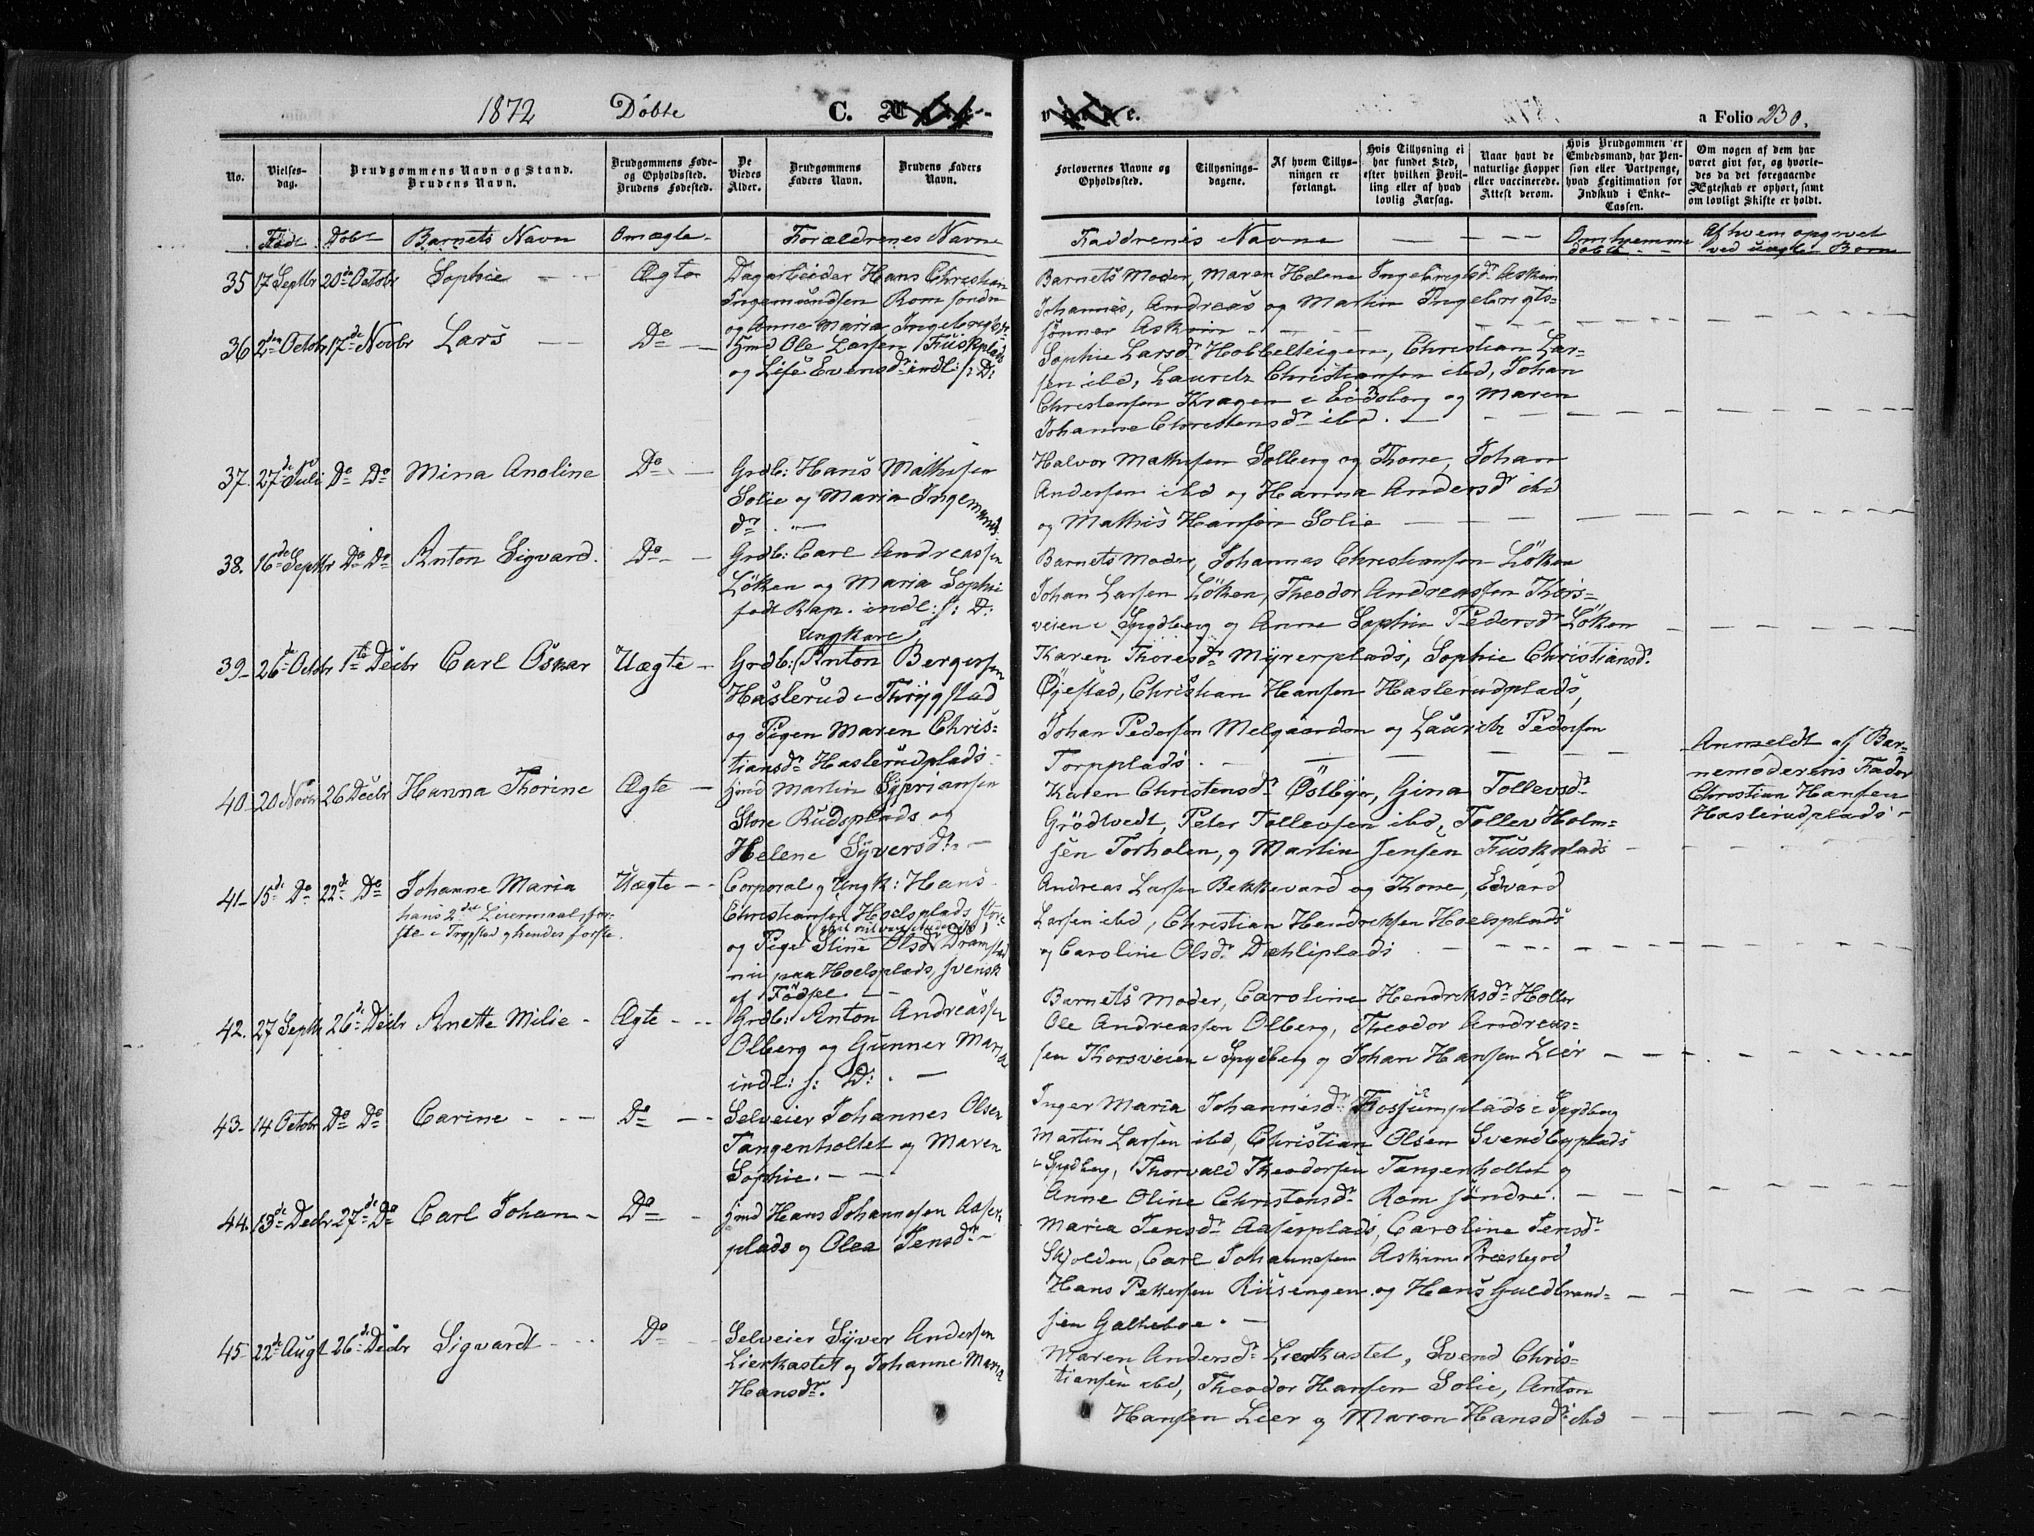 1872 Døbte C.
e. a Folio 230.
No.
Vielses-
dag.
Brudgommens Navn og Stand.
Brudens Navn.
Brudgommens Føde-
og Opholdssted.
Brudens Fødested.
De
Viedes
Alder.
Brudgommens
Faders Navn.
Brudens Faders
Navn.
Forlovernes Navne og
Opholdssted.
Tillysnings-
dagene.
Af hvem Tillys-
ningen er
forlangt.
Hvis Tillysning ei
har fundet Sted,
efter hvilken Bevil-
ling eller af hvad
lovlig Aarsag.
Naar havt de
naturlige Kopper
eller vaccinerede.
Attest derom.
Hvis Brudgommen er
Embedsmand, har Pen-
sion eller Vartpenge,
hvad Legitimation for
Indskud i Enke-
Cassen.
Om nogen af dem har
været gift før, og hvorle-
des da det foregaaende
Ægteskab er ophørt, samt
om lovligt Skifte er holdt.
Født Døbt Barnets Navn Om ægte Forældrenes Navne
Faddrenes Navne Om hjemme
døbt Af hvem opgivet
ved uægte Børn
35 17 Septbr 20de Octobr Sophie Ægte Dagarbeider Hans Christian
Ingemundsen Rom søndre
og Anne Maria Ingebrigtsdr
Barnets Moder, Maren Helene Ingebrigtsdr Askim
Johannes, Andreas og Martin Ingebrigts-
sønner Askim
36 2den Octobr 17de Novbr Lars Do Hmd Ole Larsen Fuskplads
og Lise Evensdr indl: s: D:
Sophie Larsdr Hobbelteigen, Christian Lar-
sen ibd, Lauritz Christiansen ibd, Johan
Christensen Kragen i Eidsberg og Maren
Johanne Christensdr ibd.
37. 27de Juli Do Do Mina Anoline Do Grdb: Hans Mathisen
Solie og Maria Ingemunds
dr.
Halvor Mathisen Solberg og Kone, Johan
Andersen ibd og Hanna Andersdr ibd
og Mathis Hansen Solie
38. 16de Septbr Do Do Anton Sigvard. Do Grdb: Carl Andreassen
Løken og Maria Sophie
født Rap. indl: s: D:
Barnets Moder, Johannes Christiansen Løken
Johan Larsen Løken, Theodor Andreassen Kors-
veien i Spydberg og Anne Sophie Pedersdr Løken
39 26de Octobr 1ste Decbr Carl Oskar Uægte Ungkarl,
Grdb: Anton Bergersen
Haslerud i Thrygstad
og Pigen Maren Chris-
tiansdr Haslerudplads
Karen Thoresdr Myrerplads, Sophie Christiansdr
Øjestad, Christian Hansen Haslerudplads,
Johan Pedersen Melgaarden og Lauritz Pedersen
Torpplads.
Anmeldt af Bar-
nemoderens Fader
Christian Hansen
Haslerudplads
40 20 Novbr 26 Decbr Hanna Thorine Ægte Hmd Martin Sypriansen
Store Rudsplads og
Helene Syversdr
Karen Christensdr Østbye, Gina Tollevsdr
Grødtvedt, Peter Tollevsen ibd, Tollev Holm-
sen Torholen, og Martin Jensen Fuskplads
41 15de Do 22de Do Johanne Maria Uægte Corporal og Ungk: Hans
hans 2det Leiermaal, før-
ste i Trygstad og hendes første.
Christiansen Hoelsplads
og Pige Stine Olsdr Dramstad
nu paa Hoelsplads, svensk
af Fødsel.
Andreas Larsen Bekkevard og Kone, Edvard
Larsen ibd, Christian Hendriksen Hoelsplads
og Caroline Olsdr Dæhliplads
42. 27 Septbr 26de Decbr Anette Milie Ægte Grdb: Anton Andreassen
Olberg og Gunner Maria
indl: s: D:
Barnets Moder, Caroline Hendriksdr Holter
Ole Andreassen Olberg, Theodor Andreas-
sen Korsveien i Spydberg og Johan Hansen Lier
43 14 Octobr Do Do Carine Do Selveier Johannes Olsen
Tangenholtet og Maren
Sophie.
Inger Maria Johannesdr Fossumplads i Spydberg
Martin Larsen ibd, Christian Olsen Svendbyplads
i Spydberg, Thorvald Theodorsen Tangenholtet og
Anne Oline Christensdr Rom søndre.
44. 13de Decbr 27de Do Carl Johan Do Hmd Hans Johannesen Aaser
plads og Olea Jensdr
Maria Jensdr Aaserplads, Caroline Jensdr
Skjolden, Carl Johannesen Askim Præstegrd
Hans Pettersen Riisengen og Hans Guldbrand-
sen Galteboe.
45 22de Augt 26de Decbr Sigvardt Do Selveier Syver Andersen
Lierkastet og Johanne Maria
Hansdr.
Maren Andersdr Lierkastet, Svend Chris-
tiansen ibd, Theodor Hansen Solie, Anton
Hansen Lier og Maren Hansdr ibd